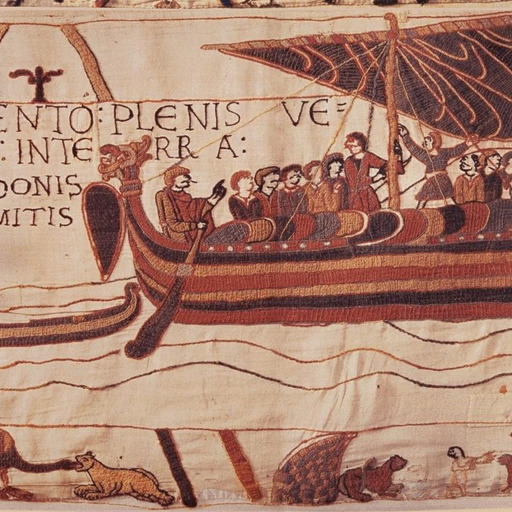 ENTO:PLENIS VE=
: INTE RR A:
DONIS
MITIS